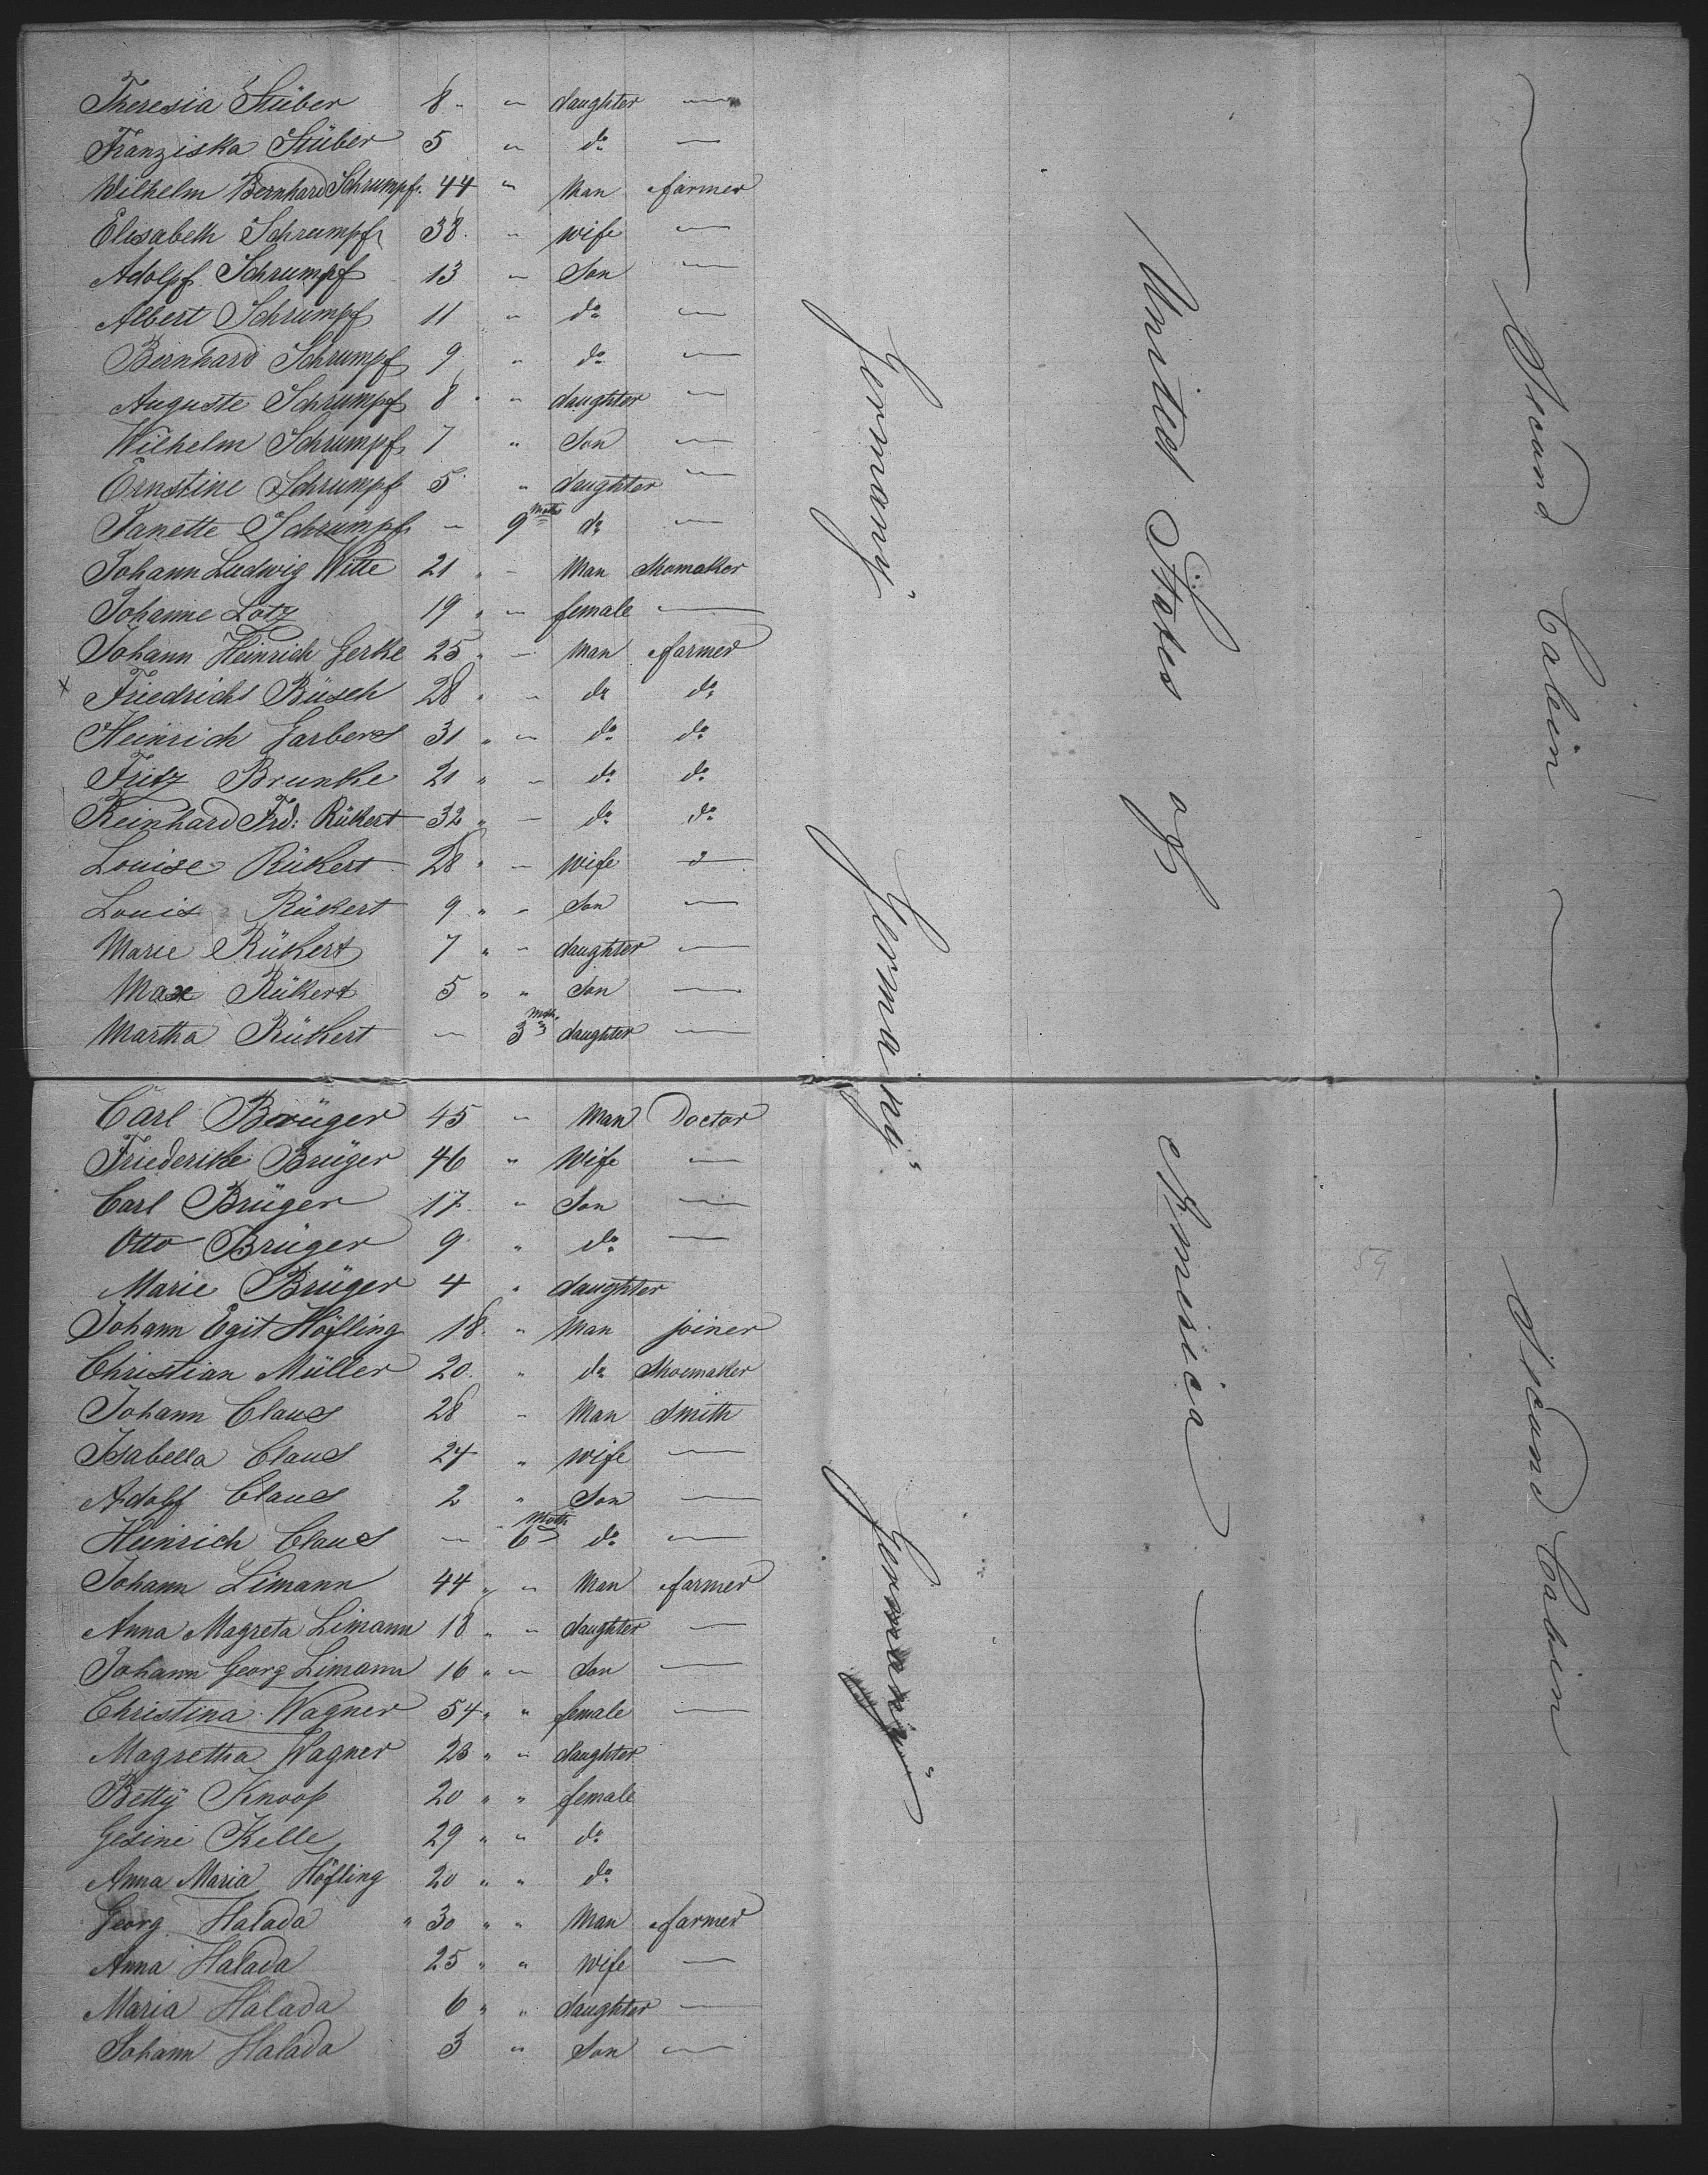 Theresia Stüber 8 " " daughter —
Franziska Stüber 5 " do —
Wilhelm Bernhard Schrumpf 44 " Man farmer
Elisabeth Schrumpf 38 " wife —
Adolpf Schrumpf 13 " Son —
Albert Schrumpf 11 " do —
Bernhard Schrumpf 9 " do —
Auguste Schrumpf 8 " " daughter —
Wilhelm Schrumpf 7 " Son —
Ernstine Schrumpf 5 " daughter —
Janette Schrumpf — 9 Mths do —
Johann Ludwig Witte 21 " — Man Shomaker
Johanne Lotz 19 " — female —
Johann Heinrich Gerke 25 " — Man farmer
x Friedrichs Büsch 28 " — do do
Heinrich Garbers 31 " — do do
Fritz Brunkhe 21 " — do do
Reinhard Frd: Rükert 32 " — do do
Louise Rükert 28 " — wife —
Louis Rükert 9 " — Son —
Marie Rükert 7 " — daughter —
Max Rükert 5 " " Son —
Martha Rükert — 3 Mths daughter —
Carl Brüger 45 — Man Doctor
Friederike Brüger 46 " Wife —
Carl Brüger 17 " Son —
Otto Brüger 9 " do —
Marie Brüger 4 " daughter
Johann Egit Höfling 18 " Man joiner
Christian Müller 20 " do Shoemaker
Johann Claus 28 — Man Smith
Isabella Claus 24 " wife —
Adolf Claus 2 " Son —
Heinrich Claus — 6 Mths do —
Johann Limann 44 " " Man farmer
Anna Magreta Limann 18 " — daughter —
Johann Georg Limann 16 " — Son —
Christina Wagner 54 " " female —
Magretha Wagner 23 " " daughter
Betty Knoop 20 " " female
Gesine Kelle 29 " " do
Anna Maria Höfling 20 " " do
Georg Halada " 30 " " Man farmer
Anna Halada 25 " " Wife —
Maria Halada 6 " " daughter —
Johann Halada 3 " Son —
Germany
Germany
Germany
United States of America —
— Second Cabin —
— Second Cabin —
54